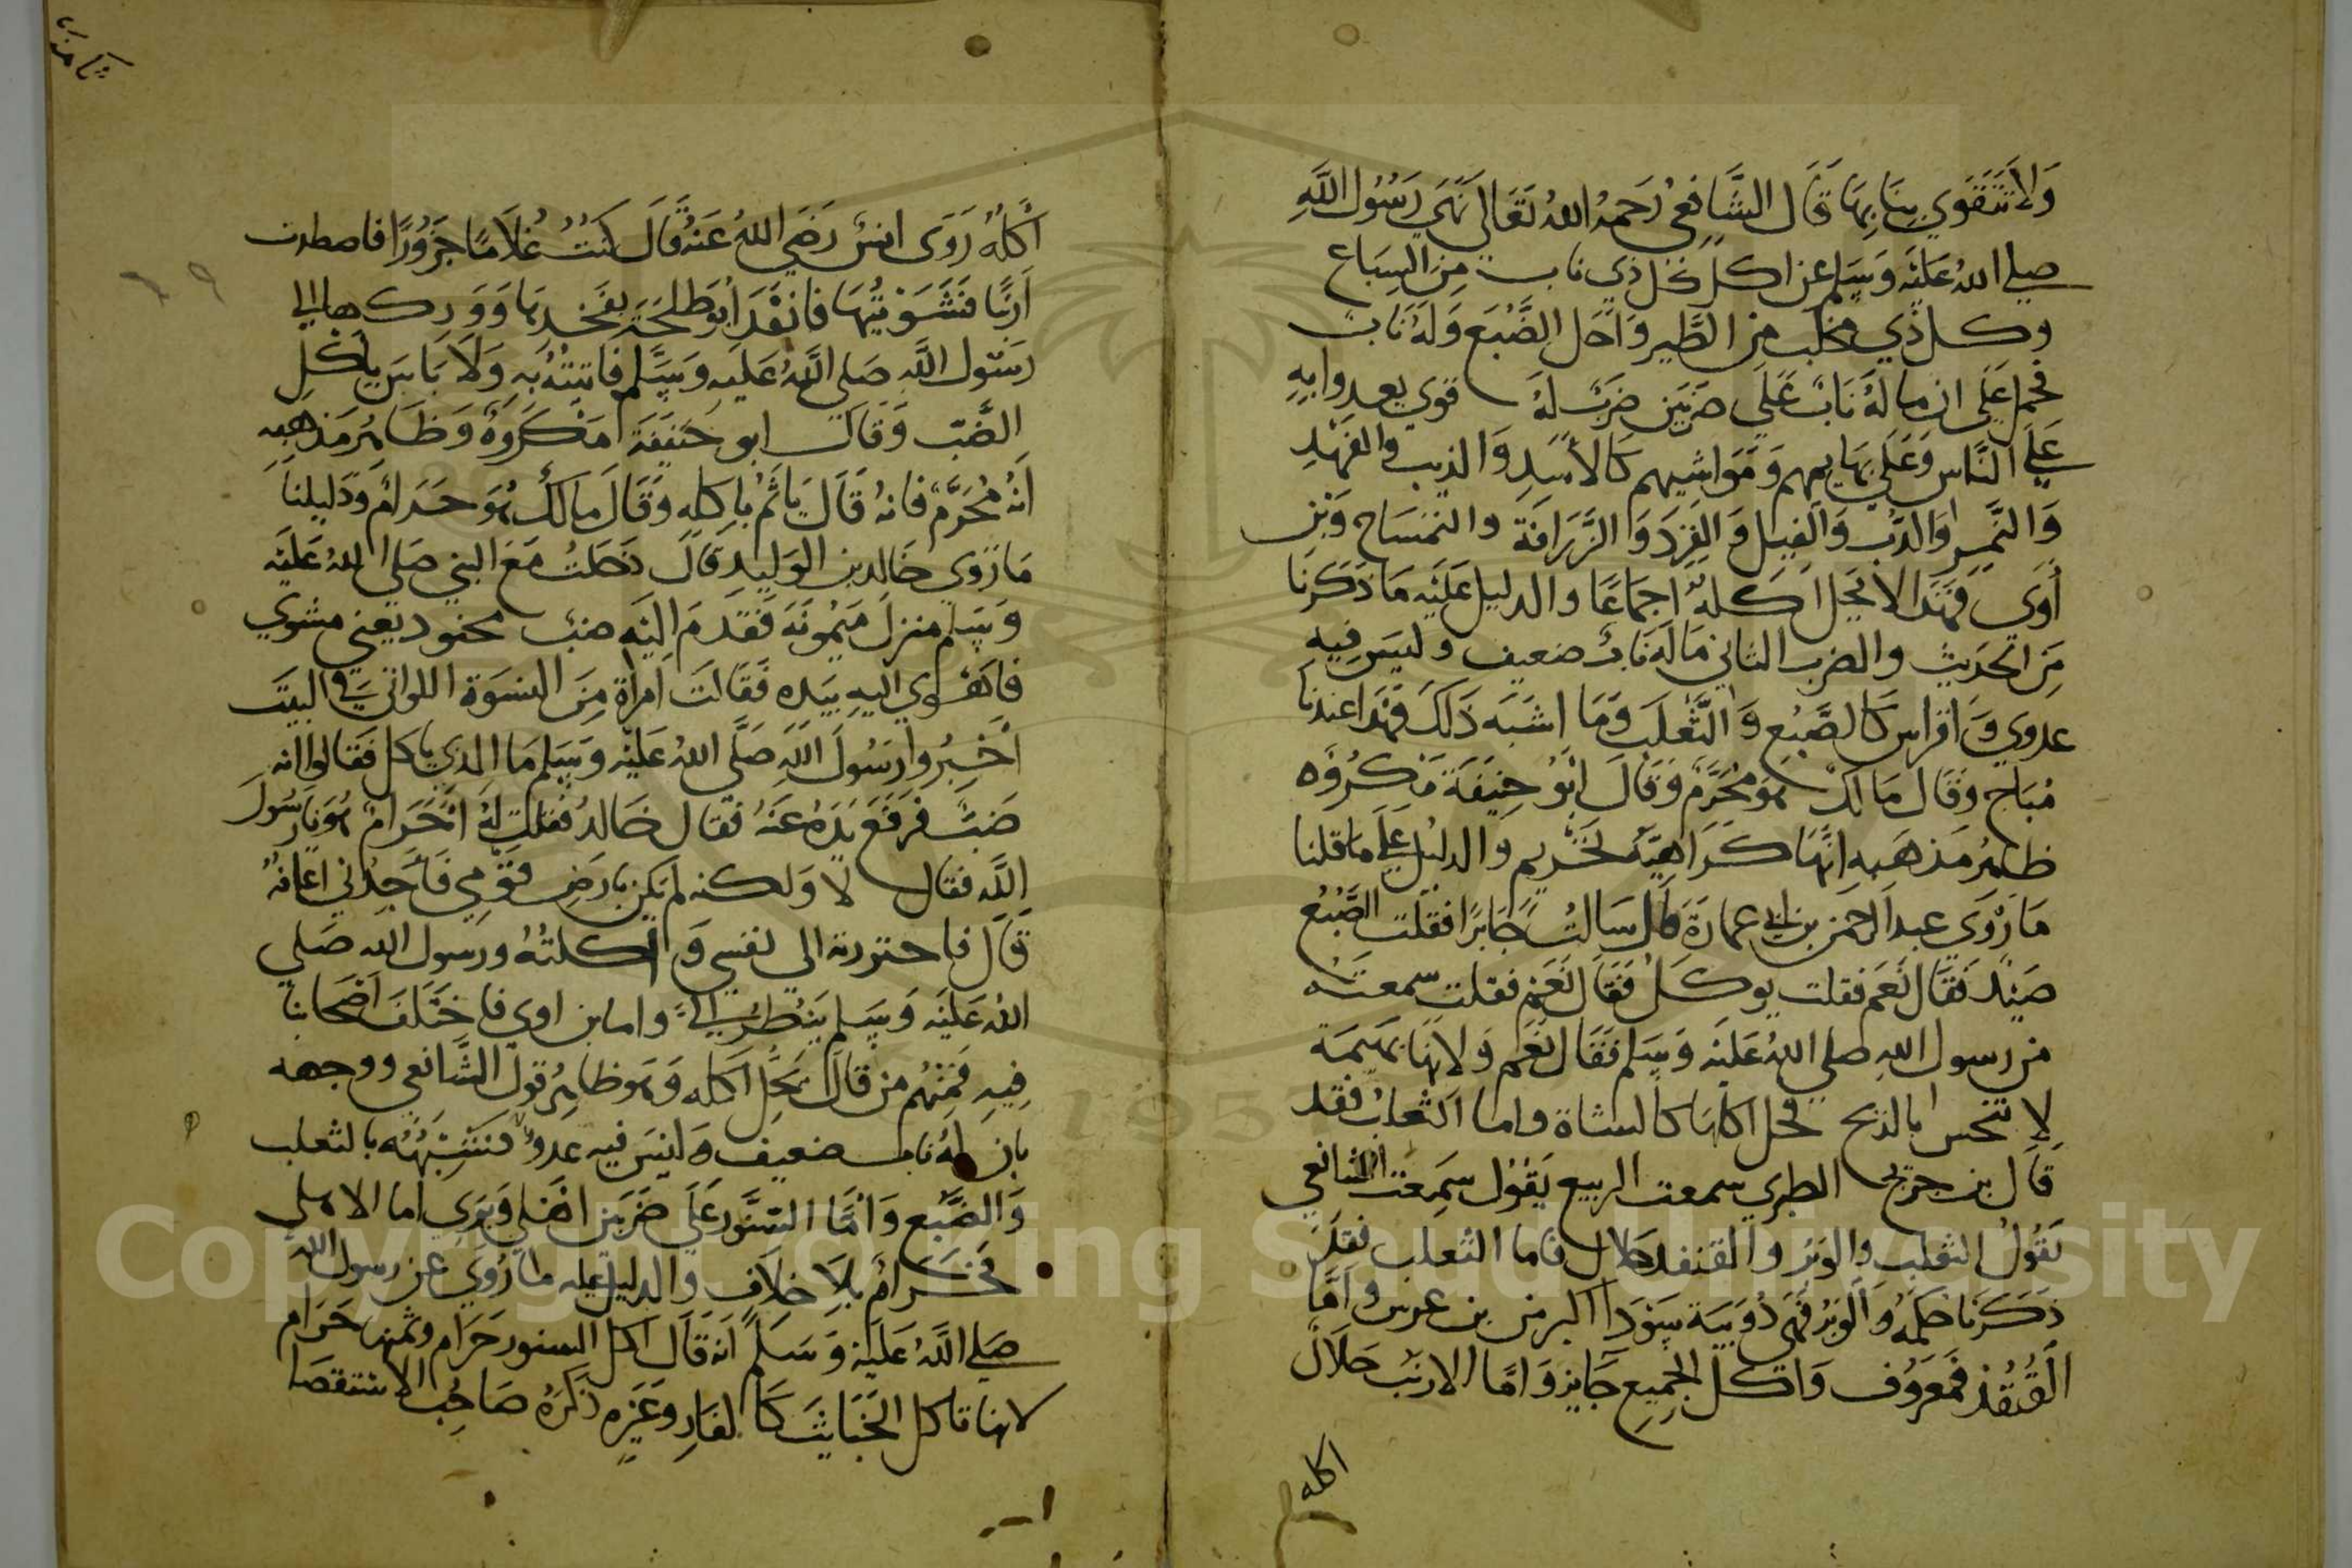 ولا تتقوي بنا بها قال الشافعي رحمه الله تعالى نهى رسول الله
صلي الله عليه وسلم عن اكل كل ذي ناب من السباع
وكل ذي مخلب من الطير واحل الضبع وله ناب
فحمل علي ان ما له ناب علي ضربين ضرب له قوي يعدوا به
علي الناس وعلي بهايمهم ومواشيهم كالأسد والذيب والفهد
والنمر والدب والفيل والقرد والزرافة والتمساح وبن
أوي فهذا لا يحل اكله اجماعا والدليل عليه ما ذكرنا
من الحديث والضرب الثاني ما له ناب ضعيف وليس فيه
عدوي وافراس كالضبع والثعلب وما اشبه ذلك فهذا عندنا
مباح وقال مالك هو محرم وقال ابو حنيفة مكروه
ظاهر مذهبه انها كراهية تحريم والدليل علي ما قلنا
ما روي عبد الرحمن بن ابي عمارة قال سالت جابرا فقلت الضبع
صيد فقال نعم فقلت يوكل فقال نعم فقلت سمعته
من رسول الله صلي الله عليه وسلم فقال نعم ولانها بهيمة
لا تنجس بالذبح فحل اكلها كالشاة واما الثعلب فقد
قال بن جريج الطبري سمعت الربيع يقول سمعت الشافعي
يقول الثعلب والوبر والقنفد حلال فاما الثعلب فقد
ذكرنا حكمه والوبر فهي دويبة سودا اكبر من بن عرس واما
القنفذ فمعروف واكل الجميع جايز واما الارنب حلال
اكله
أكله روى انس رضي الله عنه قال كنت غلاما جزورا فاصطدت
ارنبا فشويتها فانفد ابو طلحة بفخديها ووركها الي
رسول الله صلي الله عليه وسلم فاتيته به ولا باس باكل
الضب وقال ابو حنيفة مكروه وظاهر مذهبه
انه محرم فانه قال ياثم باكله وقال مالك هو حرام ودليلنا
ما روي خالد بن الوليد قال دخلت مع النبي صلي الله عليه
وسلم منزل ميمونه فقدم اليه ضب محنود يعني مشوي
فاهوي اليه بيده فقالت امرأة من النسوة اللواتي في البيت
أخبروا رسول الله صلى الله عليه وسلم ما الذي ياكل فقالوا انه
ضب فرفع يده عنه فقال خالد فقلت له احرام هو يا رسول
الله فقال لا ولكنه لم يكن بارض قومي فأجدني اعافه
قال فاحتررته الي نفسي و اكلته ورسول الله صلي
الله عليه وسلم ينظر الي واما بن اوي فاختلف اصحابنا
فيه فمنهم من قال يحل اكله وهو ظاهر قول الشافعي ووجهه
بان له ناب ضعيف وليس فيه عدو فنشبهه بالثعلب
والضبع واما السنور علي ضربين اهلي وبري اما الاهلي
فحرام بلا خلاف والدليل عليه ما روي عن رسول الله
صلي الله عليه وسلم انه قال اكل السنور حرام وثمنه حرام
لانها تاكل الخبايث كالفار وغيره ذكره صاحب الاستقصا